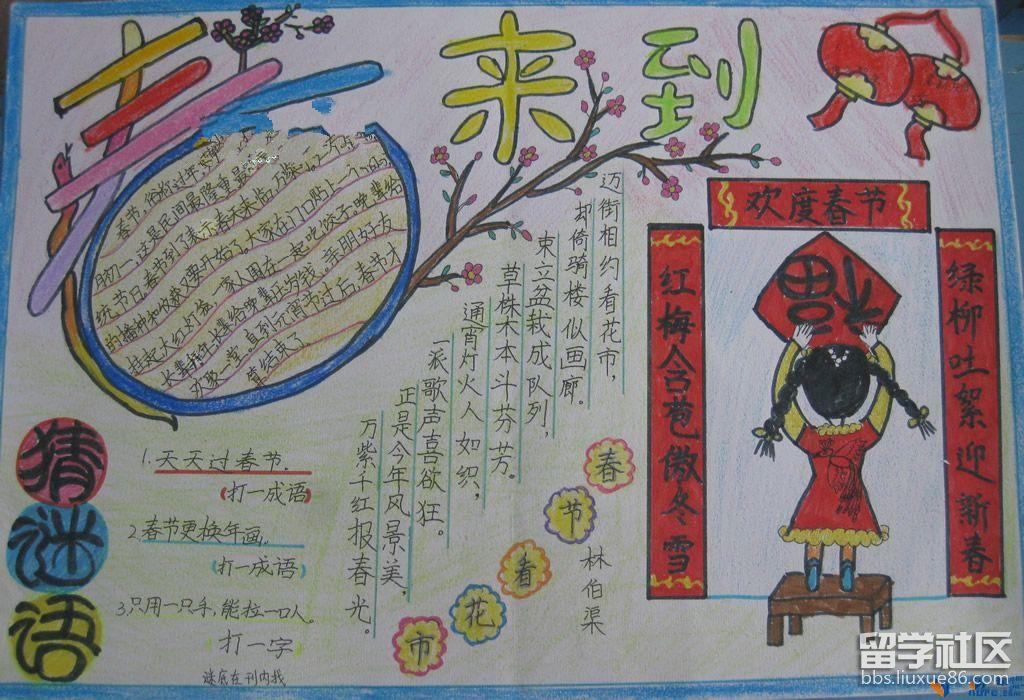 春来到
春节，俗称过年，
初一，这是民间最隆重最
统节日。春节到了表示春天来临，万象
的播种和收获又要开始了。大家在门口贴上
挂起大红灯笼，一家人围在一起吃饺子。晚辈给
长辈拜年，长辈给晚辈压岁钱。亲朋好友
欢聚一堂，直到元宵节过后，春节才
算结束了
猜谜语
1.天天过春节.
(打一成语)
2.春节更换年画。
(打一成语)
3.只用一只手，能拉一口人。
打一字
谜底在刊内找
春节看花市
林伯渠
迈街相约看花市，
却倚骑楼似画廊。
束立盆栽成队列，
草株木本斗芬芳。
通宵灯火人如织，
一派歌声喜欲狂。
正是今年风景美，
万紫千红报春光。
欢度春节
红梅含苞傲冬雪
绿柳吐絮迎新春
福
留学社区
bbs.liuxue86.com